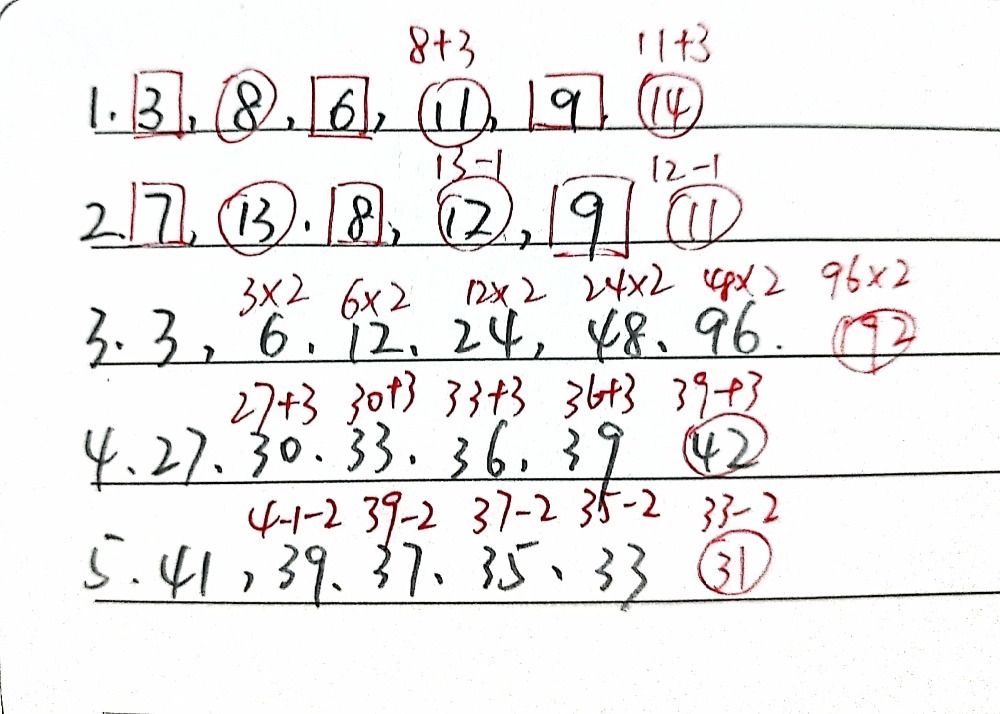 8+3 11+3
1. 3, 8, 6, 11, 9 14
13-1 12-1
2. 7, 13. 8, 12, 9 11
3×2 6×2 12×2 24×2 48×2 96×2
3. 3, 6. 12. 24, 48. 96. 192
27+3 30+3 33+3 36+3 39+3
4. 27. 30. 33. 36. 39 42
41-2 39-2 37-2 35-2 33-2
5. 41, 39. 37. 35. 33 31